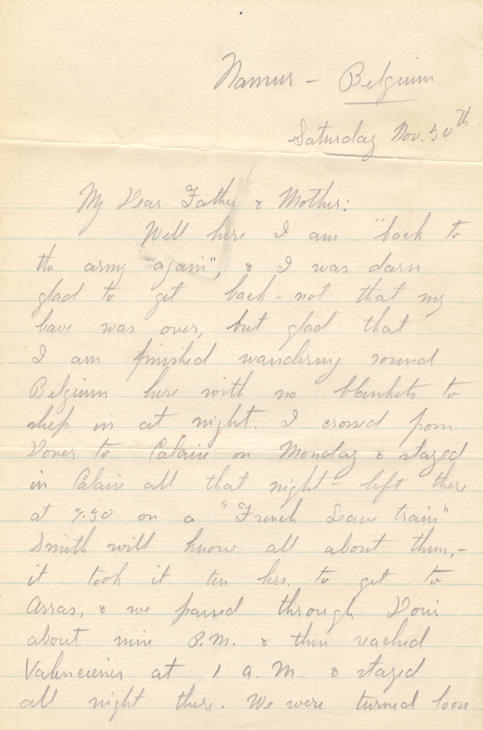 Namur - Belgium
Saturday Nov. 30th
My Dear Father & Mother:
Well here I am "back to
the army again", & I was darn
glad to get back - not that my
leave was over, but glad that
I am finished wandering round
Belgium here with no blankets to
sleep in at night. I crossed from
Dover to Calais on Monday & stayed
in Calais all that night - left there
at 7.30 on a "French Leave train"
Smith will know all about them, -
it took it ten hrs. to get to
Arras, & we passed through Douai
about nine P.M. & then reached
Valenciennes at 1 A.M. & stayed
all night there. We were turned loose